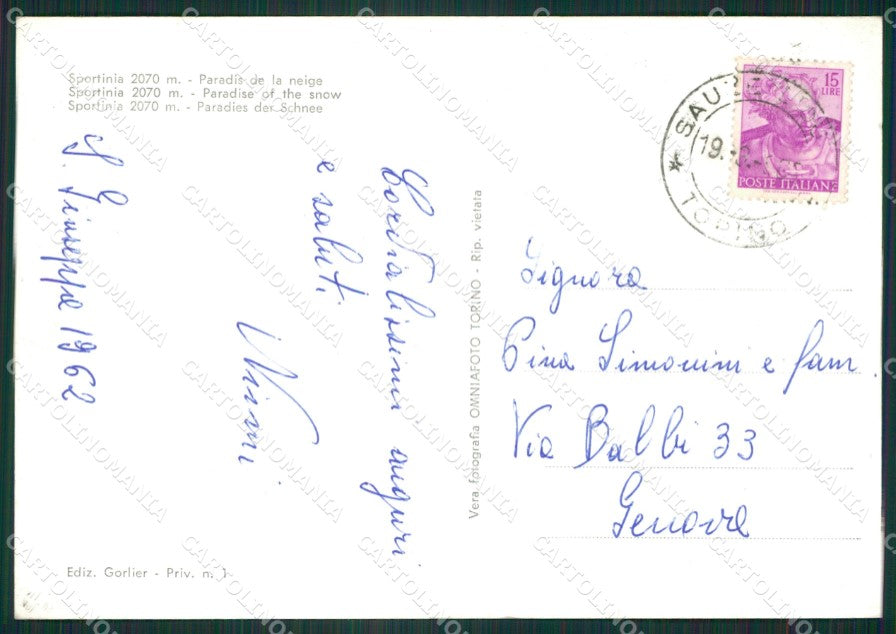 Sportinia 2070 m. - Paradis de la neige
Sportinia 2070 m. - Paradise of the snow
Sportinia 2070 m. - Paradies der Schnee
S. Giuseppe 1962
Cordialissimi auguri
e saluti
Mimi
Ediz. Gorlier - Priv. n. 1
Vera fotografia OMNIAFOTO TORINO - Rip. vietata
15
LIRE
POSTE ITALIANE
SAUZE
19.
TORINO
Signora
Pina Simonini e fam.
Via Balbi 33
Genova
CARTOLINOMANIA